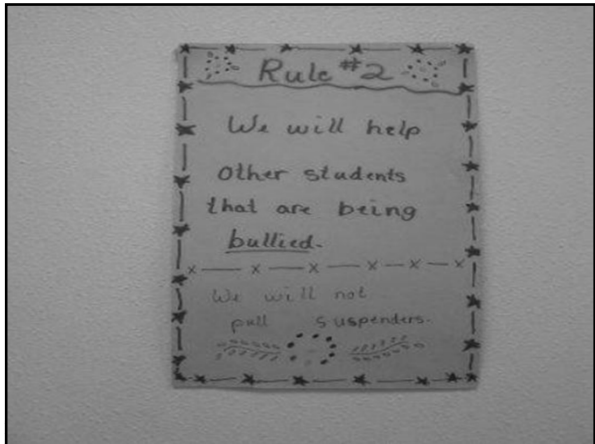 Rule #2
We will help
Other students
that are being
bullied.
We will not
pull suspenders.